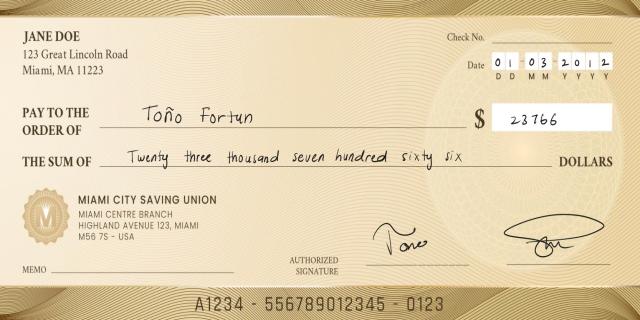 JANE DOE
123 Great Lincoln Road
Miami, MA 11223
Check No.
Date 01 03 2012
D D M M Y Y Y Y
PAY TO THE ORDER OF Toño Fortun $ 23766
THE SUM OF Twenty three thousand seven hundred sixty six DOLLARS
M
MIAMI CITY SAVING UNION
MIAMI CENTRE BRANCH
HIGHLAND AVENUE 123, MIAMI
M56 7S - USA
MEMO
AUTHORIZED
SIGNATURE
A1234 - 556789012345 - 0123